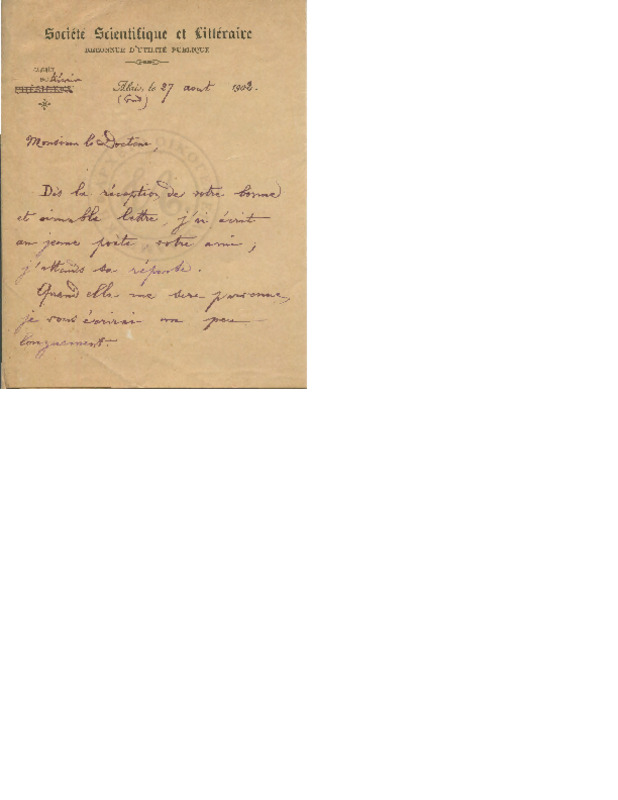 Société Scientifique et Littéraire
RECONNUE D'UTILITÉ PUBLIQUE
PRÉSIDENT
Alais, le 27 aout 1902.
(Gard)
Monsieur le Docteur,
Dès la réception de votre bonne
et aimable lettre, j'ai écrit
au jeune poète votre ami;
j'attends sa réponse.
Quand elle me sera parvenue,
je vous écrirai un peu
longuement.